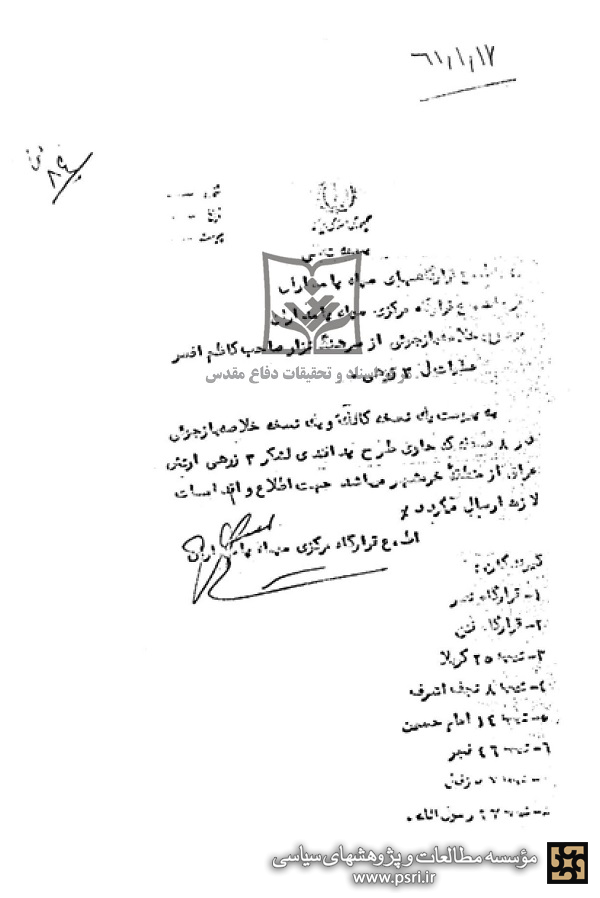 ۶۱/۱/۱۷
۸۹
جمهوری اسلامی ایران
به قرارگاههای سپاه پاسداران
قرارگاه مرکزی سپاه پاسداران
خلاصه بازجوئی از سرهنگ نزار صاحب کاظم افسر
عملیات ل ۳ زرهی
مرکز اسناد و تحقیقات دفاع مقدس
به پیوست یک نسخه کالک و یک نسخه خلاصه بازجوئی
در ۸ صفحه که حاوی طرح پدافندی لشکر ۳ زرهی ارتش
عراق از منطقه خرمشهر میباشد جهت اطلاع و اقدامات
لازمه ارسال میگردد
قرارگاه مرکزی سپاه پاسداران
گیرندگان:
۱- قرارگاه نصر
۲- قرارگاه فتح
۳- تیپ ۲۵ کربلا
۴- تیپ ۸ نجف اشرف
۵- تیپ ۱۴ امام حسین
۶- تیپ ۴۶ فجر
۷ دزفول
۲۷ رسول الله
مؤسسه مطالعات و پژوهشهای سیاسی
www.psri.ir